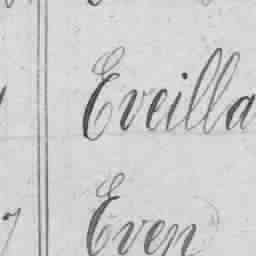 Eveilla
Even